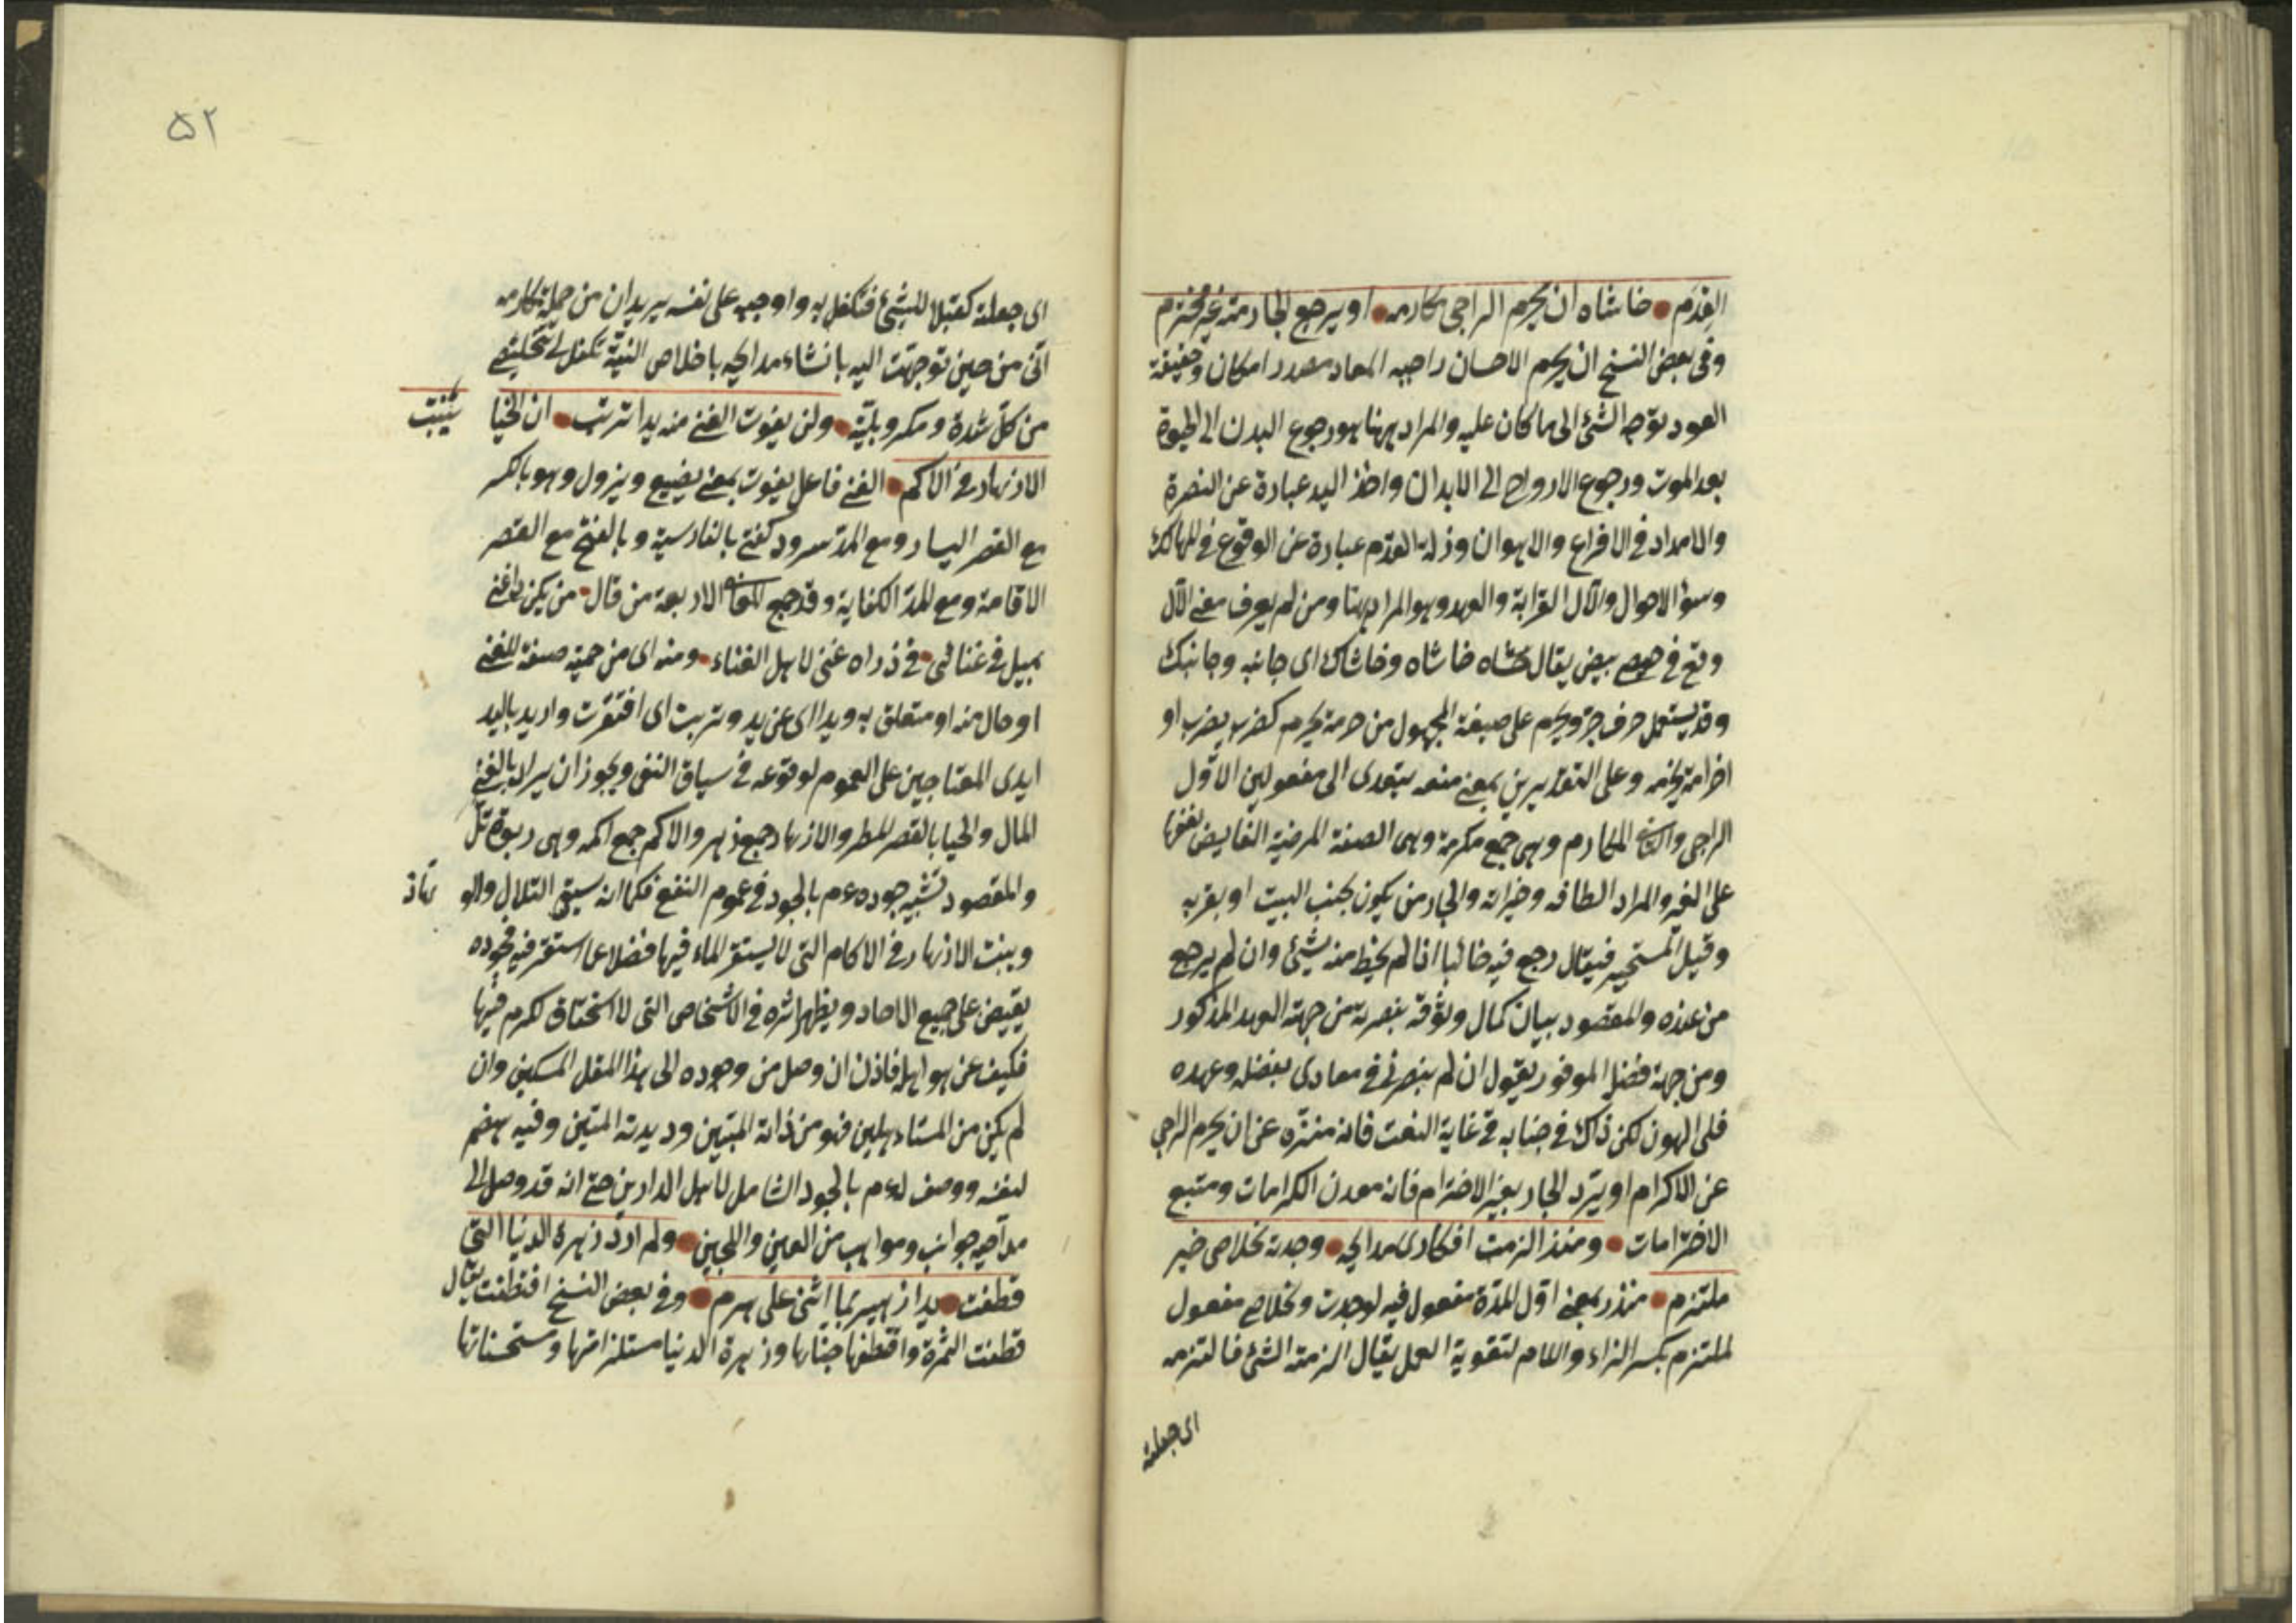 القدم حاشاه ان يحرم الراجى مكارمه او يرجع الجار منه غير محترم
وفى بعض النسخ ان يحرم الاحسان راجيه المعاد مصدر او مكان وحقيقة
العود توجه الشئ الى ما كان عليه والمراد ههنا هو رجوع البدن الى الحيوة
بعد الموت ورجوع الارواح الى الابدان واخذ اليد عبارة عن النصرة
والامداد فى الافزاع والاهوال وزلة القدم عبارة عن الوقوع فى المهالك
وسوء الاحوال والآل القرابة والعهد وهو المراد ههنا ومن لم يعرف معنى الآل
وقع فى حيص بيص يقال حشاه حاشاه وحاشاك اى جانبه وجانبك
وقد يستعمل حرف جر ويحرم على صيغة المجهول من حرمه يحرم كضرب يضرب او
احرامه يحرمه وعلى التقديرين بمعنى منعه يتعدى الى مفعولين الاول
الراجى والثانى المكارم وهى جمع مكرمة وهى الصفة المرضية الفايض نفعها
على الغير والمراد الطافه وخيراته والجار من يكون بجنب البيت او بقربه
وقيل المستجير فيقال رجع فيه خائبا اذا لم يحظ منه بشئ وان لم يرجع
من عنده والمقصود بيان كمال وثوقه بنصرته من جهته العهد المذكور
ومن جهة فضله الموفور يقول ان لم ينصرنى فى معادى بفضله وعهده
فلى الهون لكن ذاك فى جنابه فى غاية البعد فانه منزه عن ان يحرم الراجى
عن الاكرام او يرد الجار بغير الاحترام فانه معدن الكرامات ومنبع
الاحترامات ومنذ الزمت افكارى مدايحه وجدته لخلاصى خير
ملتزم منذ بمعنى اول المدة مفعول فيه لوجدت ولخلاصى مفعول
لملتزم بكسر الزاء واللام لتقوية العمل يقال الزمته الشئ فالتزمه
اى جعلته
٥٢
اى جعلته كفيلا للشئ فتكفل به واوجبه على نفسه يريد ان من جملة مكارمه
انى من حين توجهت اليه بانشاء مدايحه باخلاص النية تكفل لى بتخليصى
من كل شدة ومكر وبلية ولن يفوت الغنى منه يدا تربت ان الحيا ينبت
الازهار فى الاكم الغنى فاعل يفوت بمعنى يضيع ويزول وهو بالكسر
مع القصر اليسار ومع المد سرود كفتن بالفارسية وبالفتح مع القصر
الاقامة ومع المد الكفاية وقد جمع المعانى الاربعة من قال من يكن ذا غنى
يميل فى غنائى فى ذراه غنى لاهل الغناء ومنه اى من جهته صفة للغنى
او حال منه او متعلق به ويدا اى عن يد وتربت اى افتقرت واريد باليد
ايدى المحتاجين على العموم لوقوعه فى سياق النفى ويجوز ان يراد بالغنى
المال والحيا بالقصر المطر والازهار جمع زهر والاكم جمع اكمه وهى ربوة تل
والمقصود تشبيه جوده عم بالجود فى عموم النفع فكما انه يسقى التلال والو هاد
وينبت الازهار فى الاكام التى لا يستقر الماء فيها فضلا عما استقر فيه فجوده
يفيض على جميع الاحاد ويظهر اثره فى الاشخاص التى لا استحقاق لكرم فيها
فكيف عن هو اهله فاذن ان وصل من وجوده الى هذا المقل المسكين وان
لم يكن من المستاءهلين فهو من ذاته المبين وديدنه المتين وفيه هضم
لنفسه ووصف له عم بالجود الشامل لاهل الدارين حتى انه قد وصل الى
مداحيه جوائب ومواهب من العين واللجين ولم ارد زهرة الدنيا التى
قطفت يدا زهير بما اثنى على هرم وفى بعض النسخ اقتطفت يقال
قطفت الثمرة واقتطفها جناها وزهرة الدنيا مستلزماتها ومستحسناتها